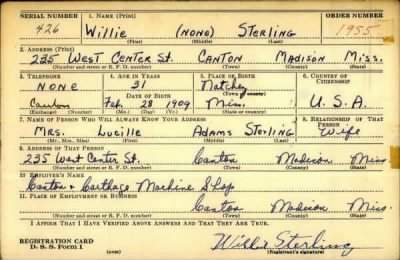 SERIAL NUMBER 1. NAME (Print) ORDER NUMBER
426 Willie (NONE) Sterling 1955
(First) (Middle) (Last)
2. ADDRESS (Print)
235 West Center St. Canton Madison Miss.
(Number and street or R. F. D. number) (Town) (County) (State)
3. TELEPHONE 4. AGE IN YEARS 5. PLACE OF BIRTH 6. COUNTRY OF CITIZENSHIP
NONE 31 Natchez
DATE OF BIRTH (Town or county)
Canton Feb. 28 1909 Miss. U.S.A.
(Exchange) (Number) (Mo.) (Day) (Yr.) (State or country)
7. NAME OF PERSON WHO WILL ALWAYS KNOW YOUR ADDRESS 8. RELATIONSHIP OF THAT PERSON
Mrs. Lucille Adams Sterling Wife
(Mr., Mrs., Miss) (First) (Middle) (Last)
9. ADDRESS OF THAT PERSON
235 West Center St. Canton Madison Miss
(Number and street or R. F. D. number) (Town) (County) (State)
10. EMPLOYER'S NAME
Canton & Carthage Machine Shop
11. PLACE OF EMPLOYMENT OR BUSINESS
Canton Madison Miss
(Number and street or R. F. D. number) (Town) (County) (State)
I AFFIRM THAT I HAVE VERIFIED ABOVE ANSWERS AND THAT THEY ARE TRUE.
REGISTRATION CARD Willie Sterling
D. S. S. Form 1 (over) (Registrant's signature)